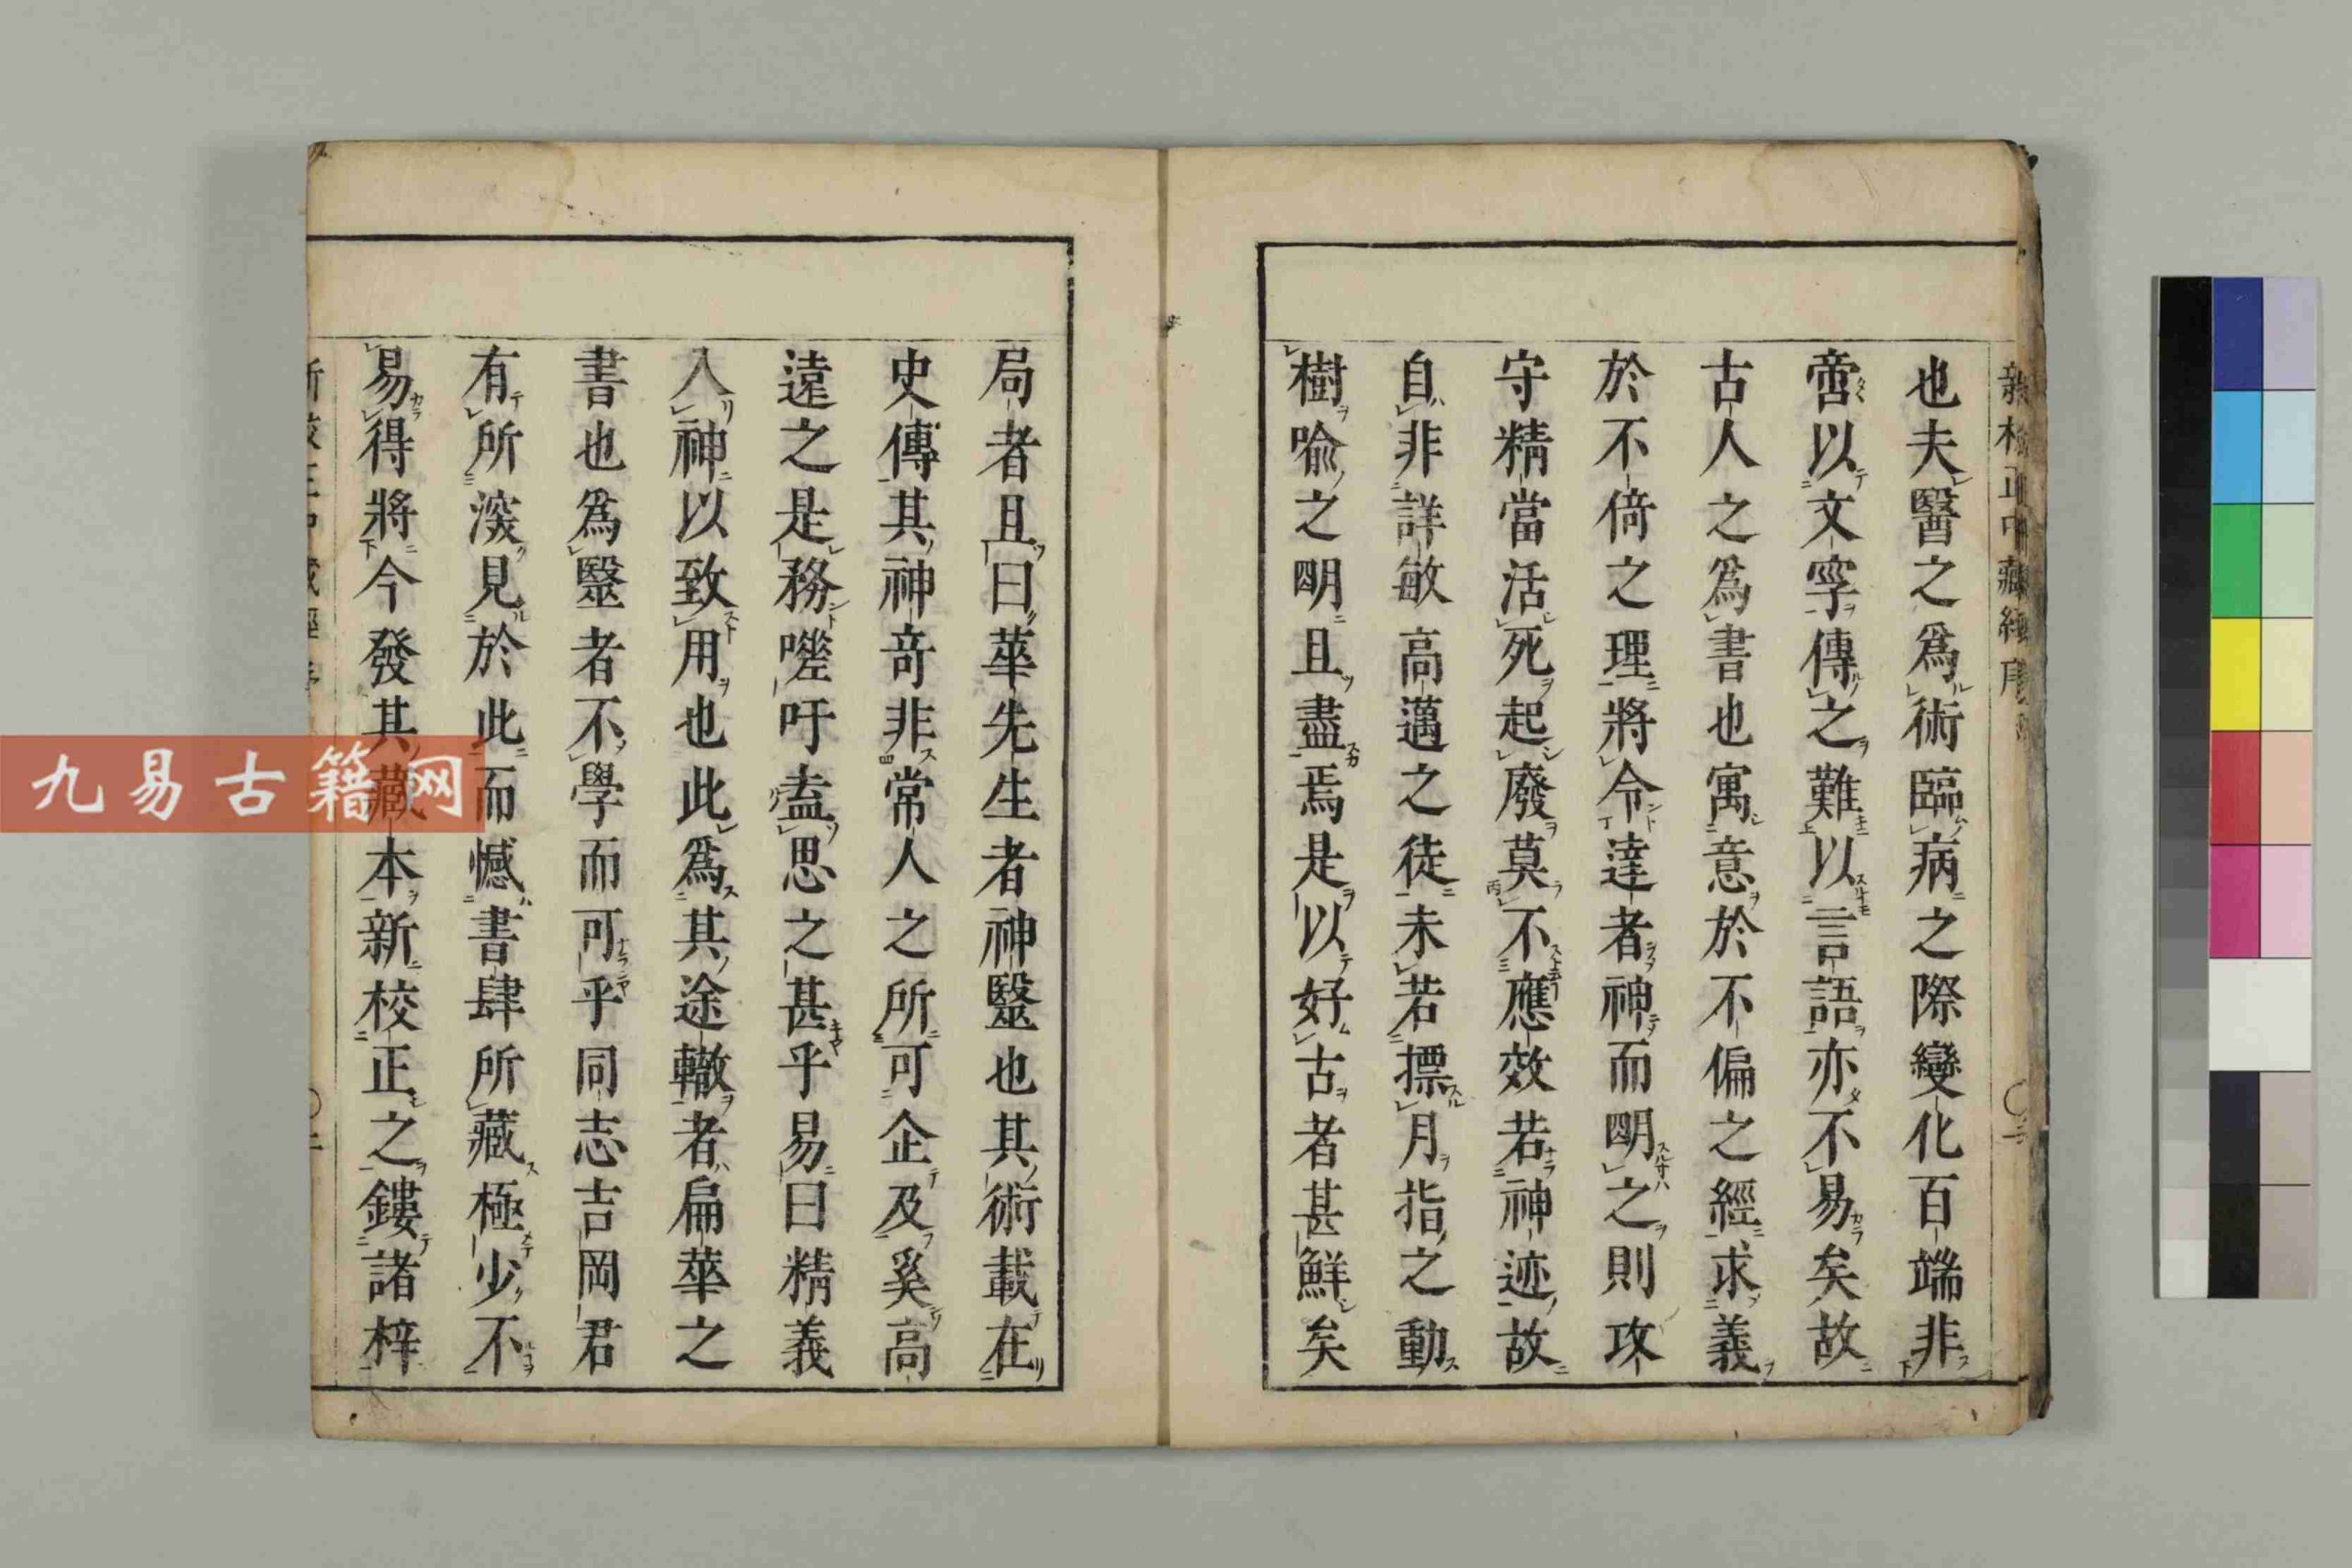 新校正中藏經序
也夫醫之爲術臨病之際變化百端非
啻以文字傳之難以言語亦不易矣故
古人之爲書也寓意於不偏之經求義
於不倚之理將令達者神而明之則攻
守精當活死起廢莫不應效若神迹故
自非詳敏高邁之徒未若摽月指之動
樹喩之明且盡焉是以好古者甚鮮矣
局者且曰華先生者神醫也其術載在
史傳其神奇非常人之所可企及奚高
遠之是務嗟吁盍思之甚乎易曰精義
入神以致用也此爲其途轍者扁華之
書也爲醫者不學而可乎同志吉岡君
有所深見於此而憾書肆所藏極少不
易得將今發其藏本新校正之鏤諸梓
九易古籍网